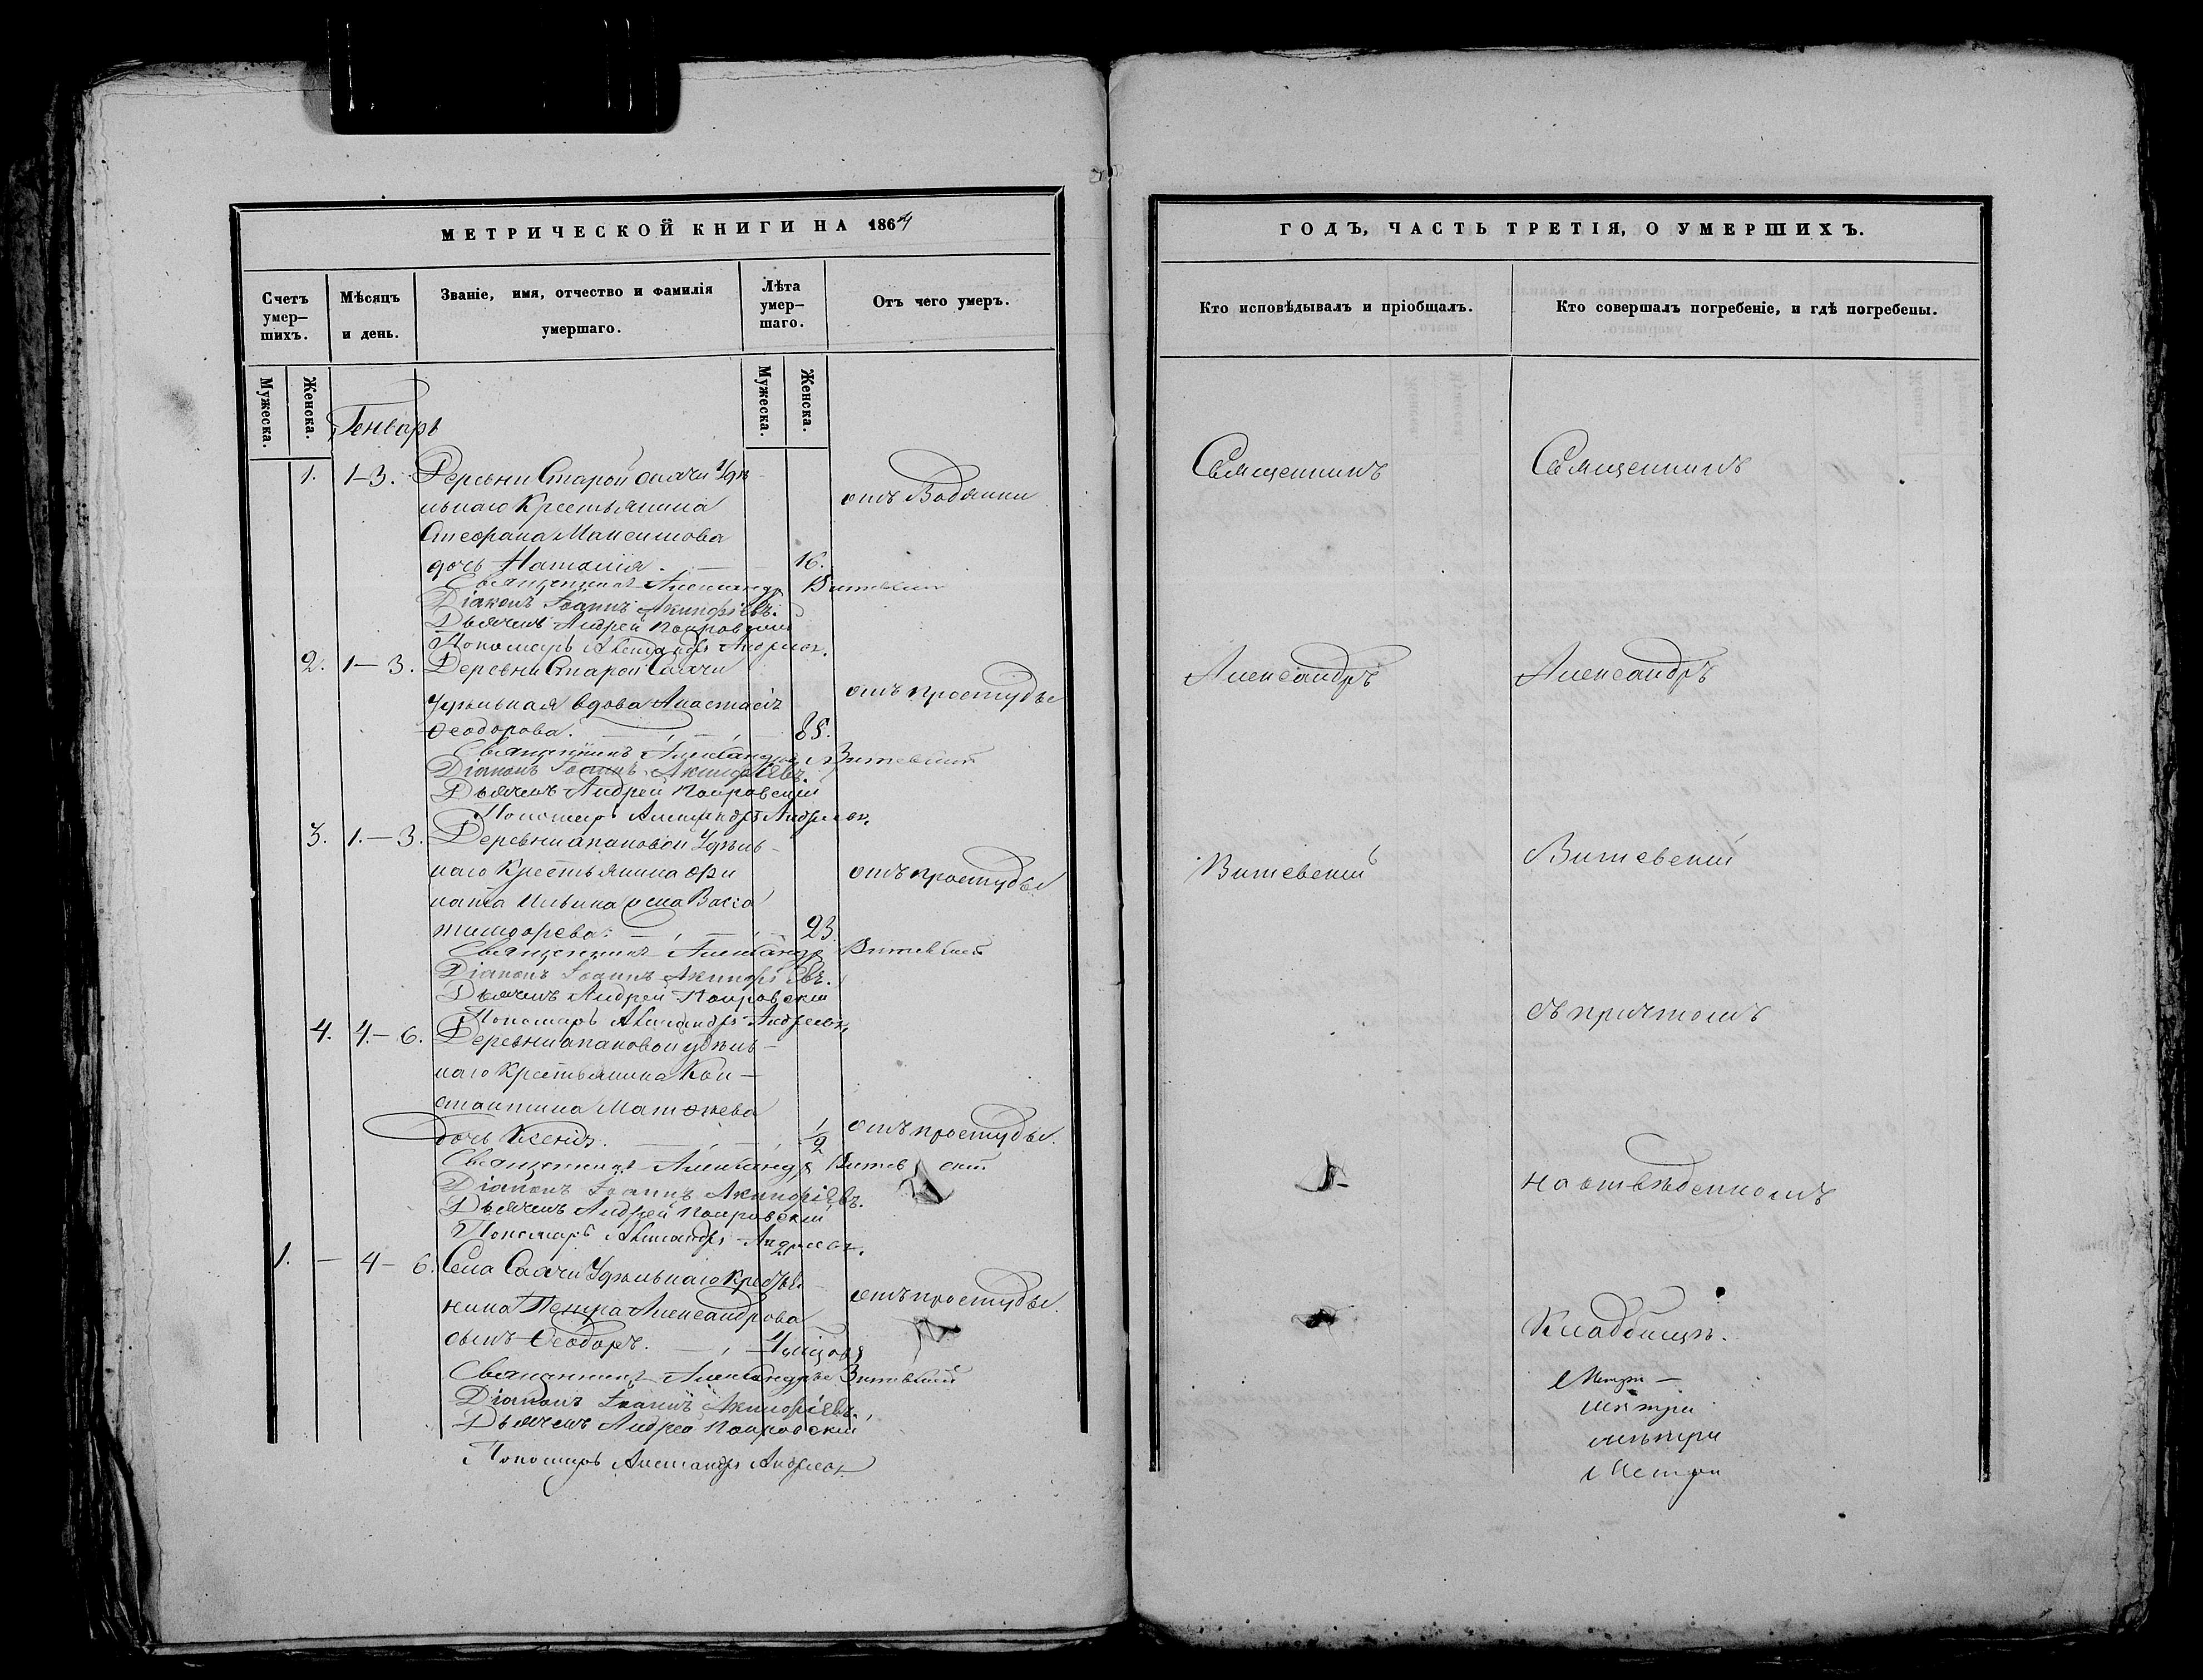 МЕТРИЧЕСКОЙ КНИГИ НА 1864
Счетъ умер–шихъ.
Мѣсяцъ и день.
Званіе, имя, отчество и фамилія умершаго.
Лѣта умер–шаго.
Отъ чего умеръ.
Мужеска.
Женска.
Мужеска.
Женска.
Генварь
1. 1-3. Деревни Старой Саачи Удѣ-
льнаго Крестьянина
отъ Водянки
Стефана Максимова
дочь Наталія. — 16.
Священникъ Александръ Витевскій
Діаконъ Іоаннъ Акинфіевъ.
Дьячекъ Андрей Покровскій
Пономарь Александръ Андреевъ.
2. 1—3. Деревни Старой Саачи
удѣльная вдова Анастасія
отъ простуды
Ѳеодорова. — 85.
Священникъ Александръ Витевскій
Діаконъ Іоаннъ Акинфіевъ.
Дьячекъ Андрей Покровскій
Пономарь Александръ Андреевъ.
3. 1.—3. Деревни Апановой Удѣль-
наго Крестьянина
отъ простуды
Ильина жена
23.
Священникъ Александръ Витевскій
Діаконъ Іоаннъ Акинфіевъ.
Дьячекъ Андрей Покровскій
Пономарь Александръ Андреевъ.
4. 4.—6. Деревни Апановой удѣль-
наго Крестьянина Кон-
стантина Матѳѣева
дочь Ксенія. — 1/2
отъ простуды.
Священникъ Александръ Витевскій
Діаконъ Іоаннъ Акинфіевъ.
Дьячекъ Андрей Покровскій
Пономарь Александръ Андреевъ.
1. — 4—6. Села Саачи Удѣльнаго Крестья-
нина Петра Александрова
отъ простуды.
сынъ Ѳеодоръ. —
Священникъ Александръ Витевскій
Діаконъ Іоаннъ Акинфіевъ.
Дьячекъ Андрей Покровскій
Пономарь Александръ Андреевъ
ГОДЪ, ЧАСТЬ ТРЕТІЯ, О УМЕРШИХЪ.
Кто исповѣдывалъ и пріобщалъ.
Кто совершалъ погребеніе, и гдѣ погребены.
Священникъ
Священникъ
Александръ
Александръ
Витевскій
Витевскій
съ причтомъ
на отведенномъ
Кладбищѣ.